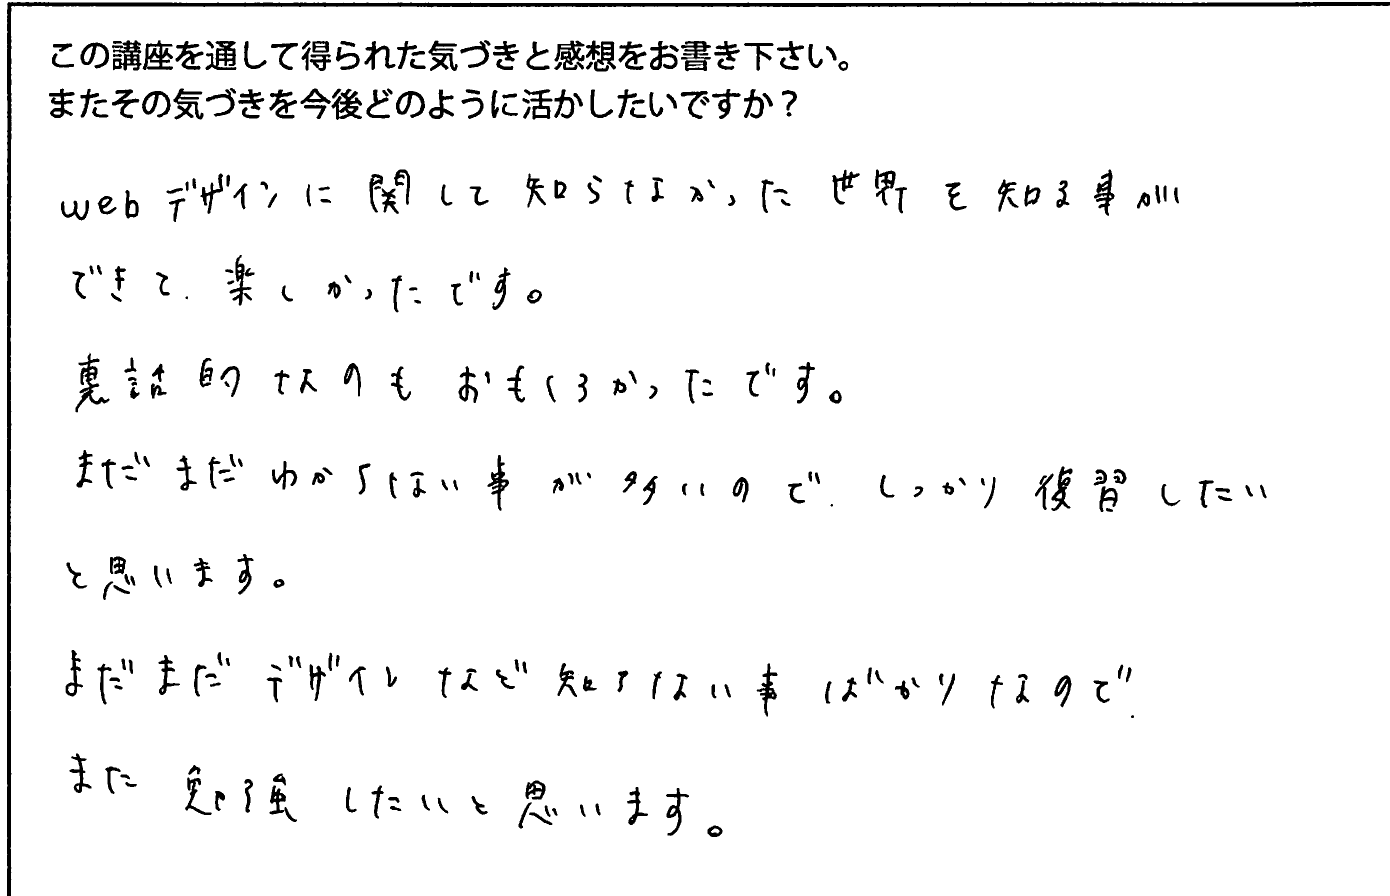 この講座を通して得られた気づきと感想をお書き下さい。
またその気づきを今後どのように活かしたいですか？
webデザインに関して知らなかった世界を知る事が
できて、楽しかったです。
裏話的なのもおもしろかったです。
まだまだわからない事が多いので、しっかり復習したい
と思います。
まだまだデザインなど知らない事ばかりなので、
また勉強したいと思います。